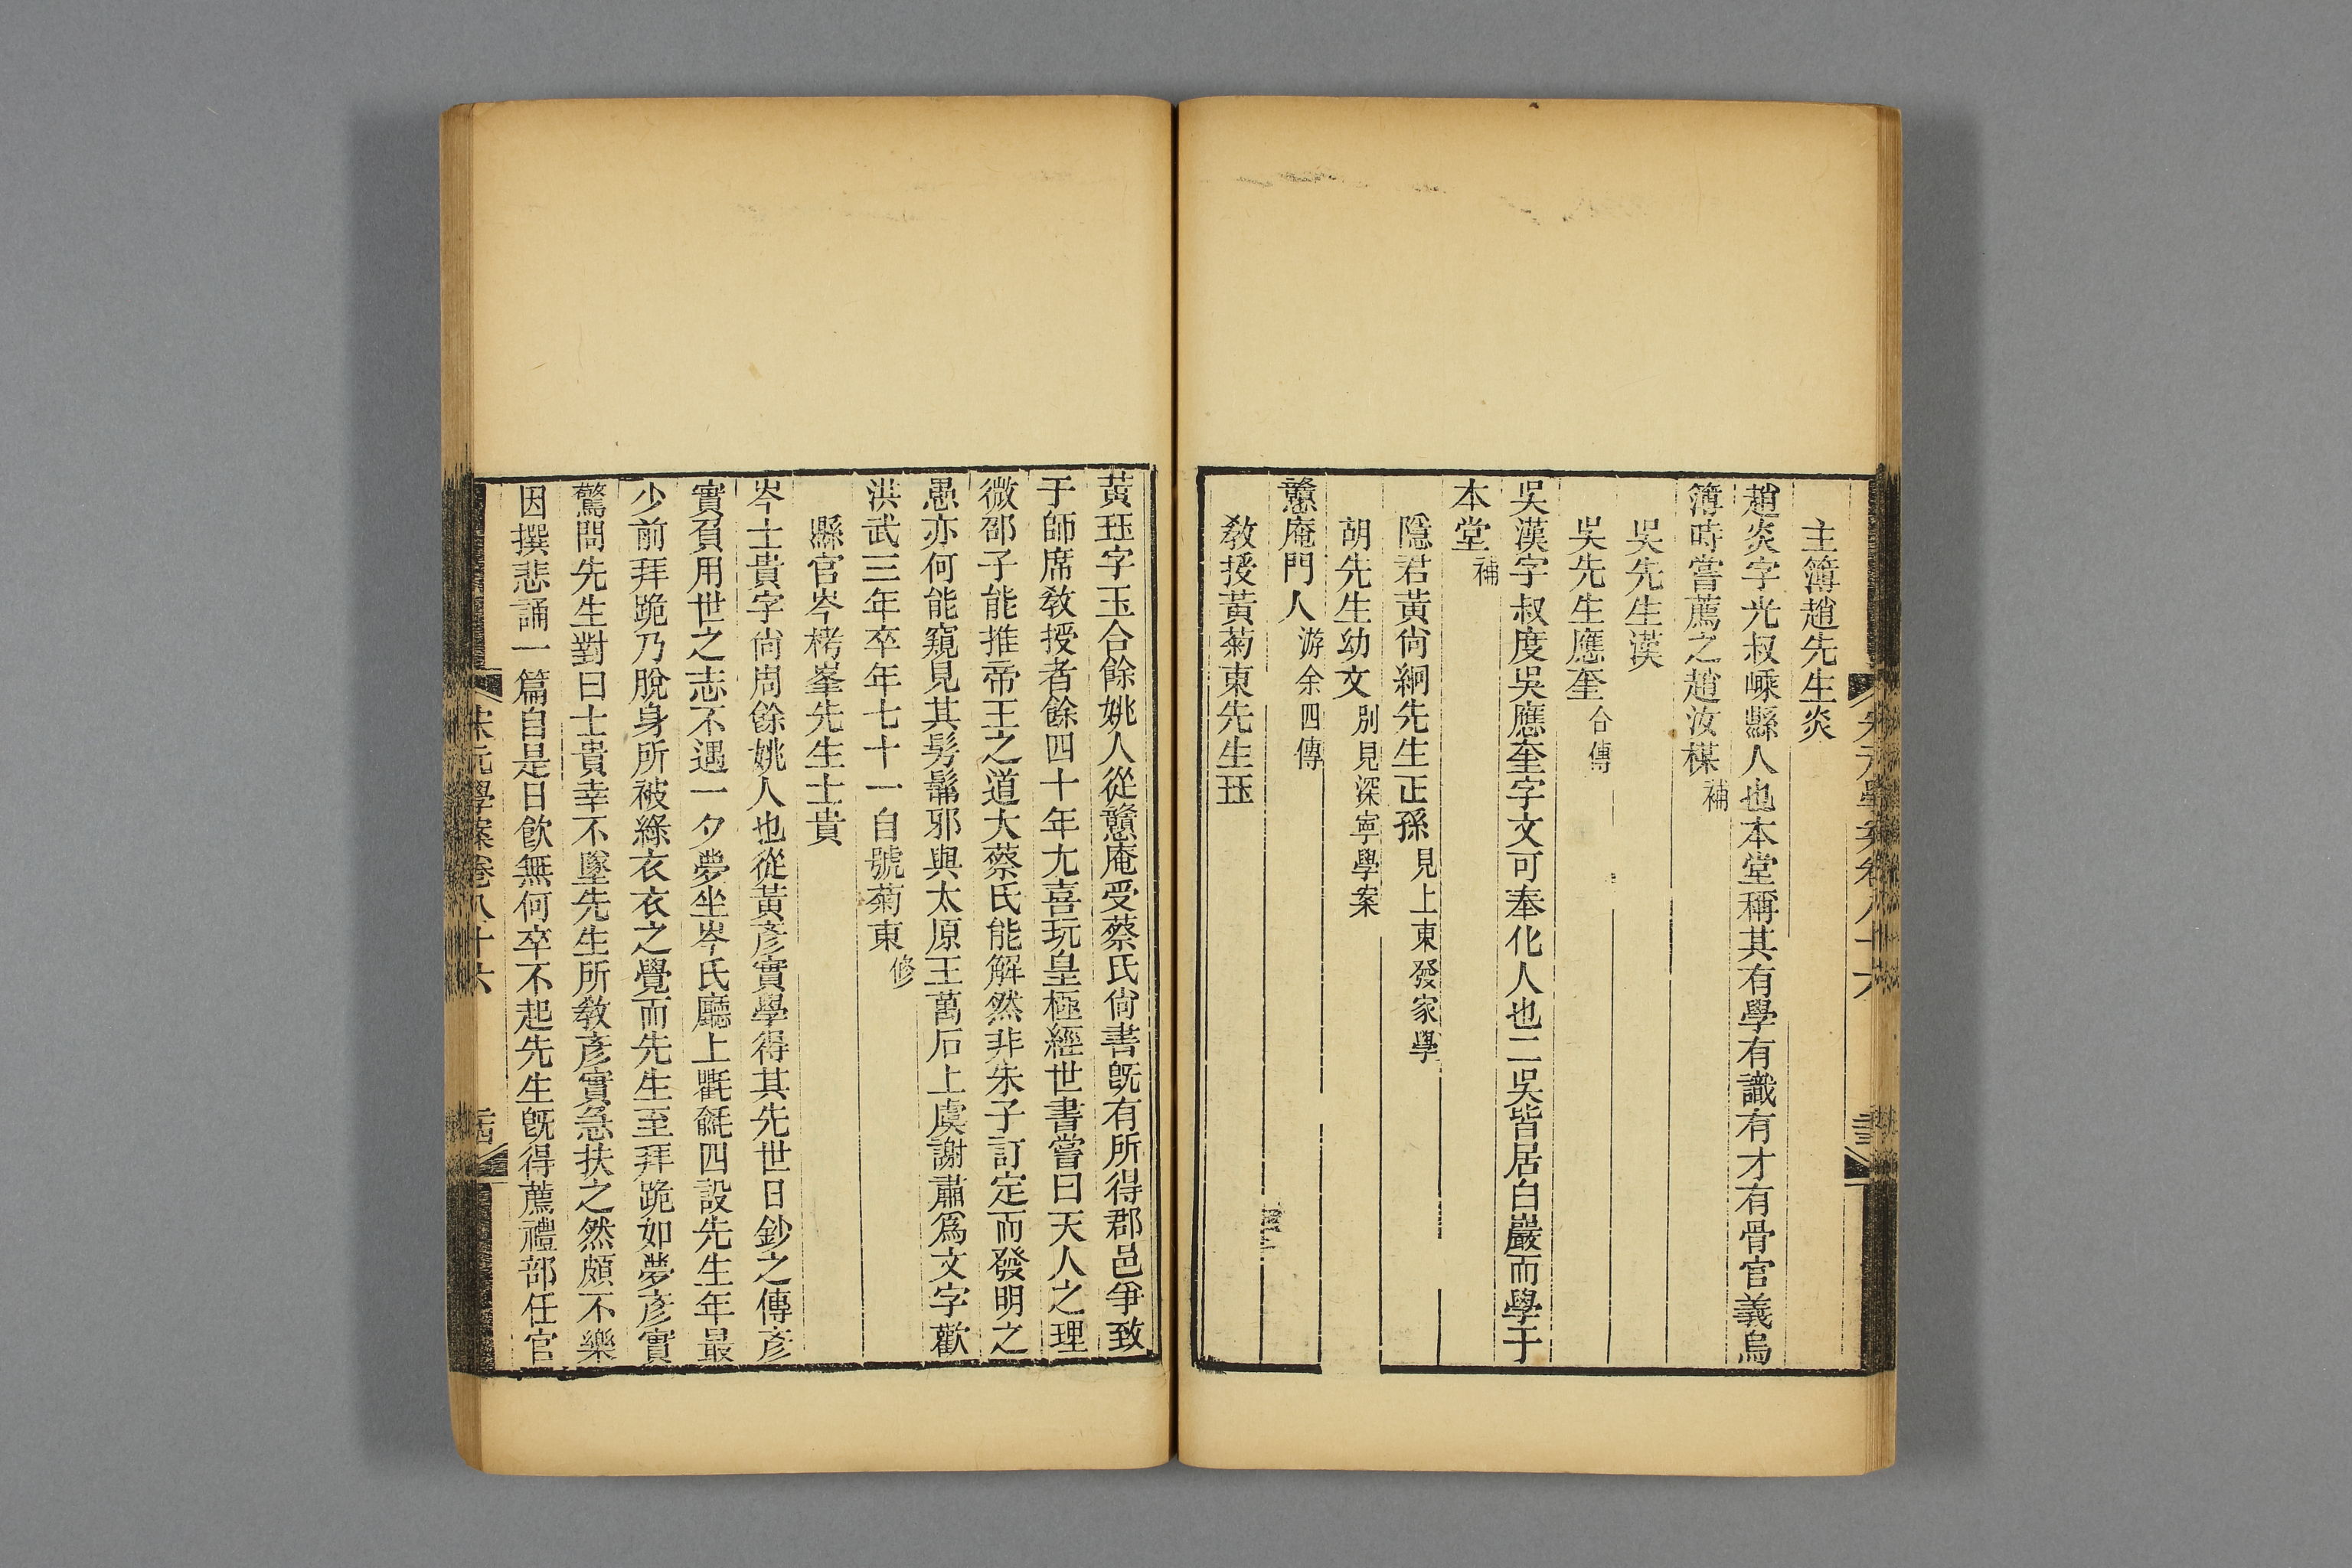 主簿趙先生炎
趙炎字光叔嵊縣人也本堂稱其有學有識有才有骨官義烏
簿時嘗薦之趙汝楳補
吳先生漢
吳先生應奎合傳
吳漢字叔度吳應奎字文可奉化人也二吳皆居白巖而學于
本堂補
隱君黃尙絅先生正孫見上東發家學
胡先生幼文別見深寧學案
戇庵門人游余四傳
敎授黃菊東先生珏
黃珏字玉合餘姚人從戇庵受蔡氏尙書旣有所得郡邑爭致
于師席敎授者餘四十年尢喜玩皇極經世書嘗曰天人之理
微邵子能推帝王之道大蔡氏能解然非朱子訂定而發明之
愚亦何能窺見其髣髴邪與太原王萬石上虞謝肅爲文字歡
洪武三年卒年七十一自號菊東修
縣官岑栲峯先生士貴
岑士貴字尙周餘姚人也從黃彥實學得其先世日鈔之傳彥
實負用世之志不遇一夕夢坐岑氏廳上氍毹四設先生年最
少前拜跪乃脫身所被綠衣衣之覺而先生至拜跪如夢彥實
驚問先生對曰士貴幸不墜先生所敎彥實急扶之然頗不樂
因撰悲誦一篇自是日飮無何卒不起先生旣得薦禮部任官
宋元學案卷八十六